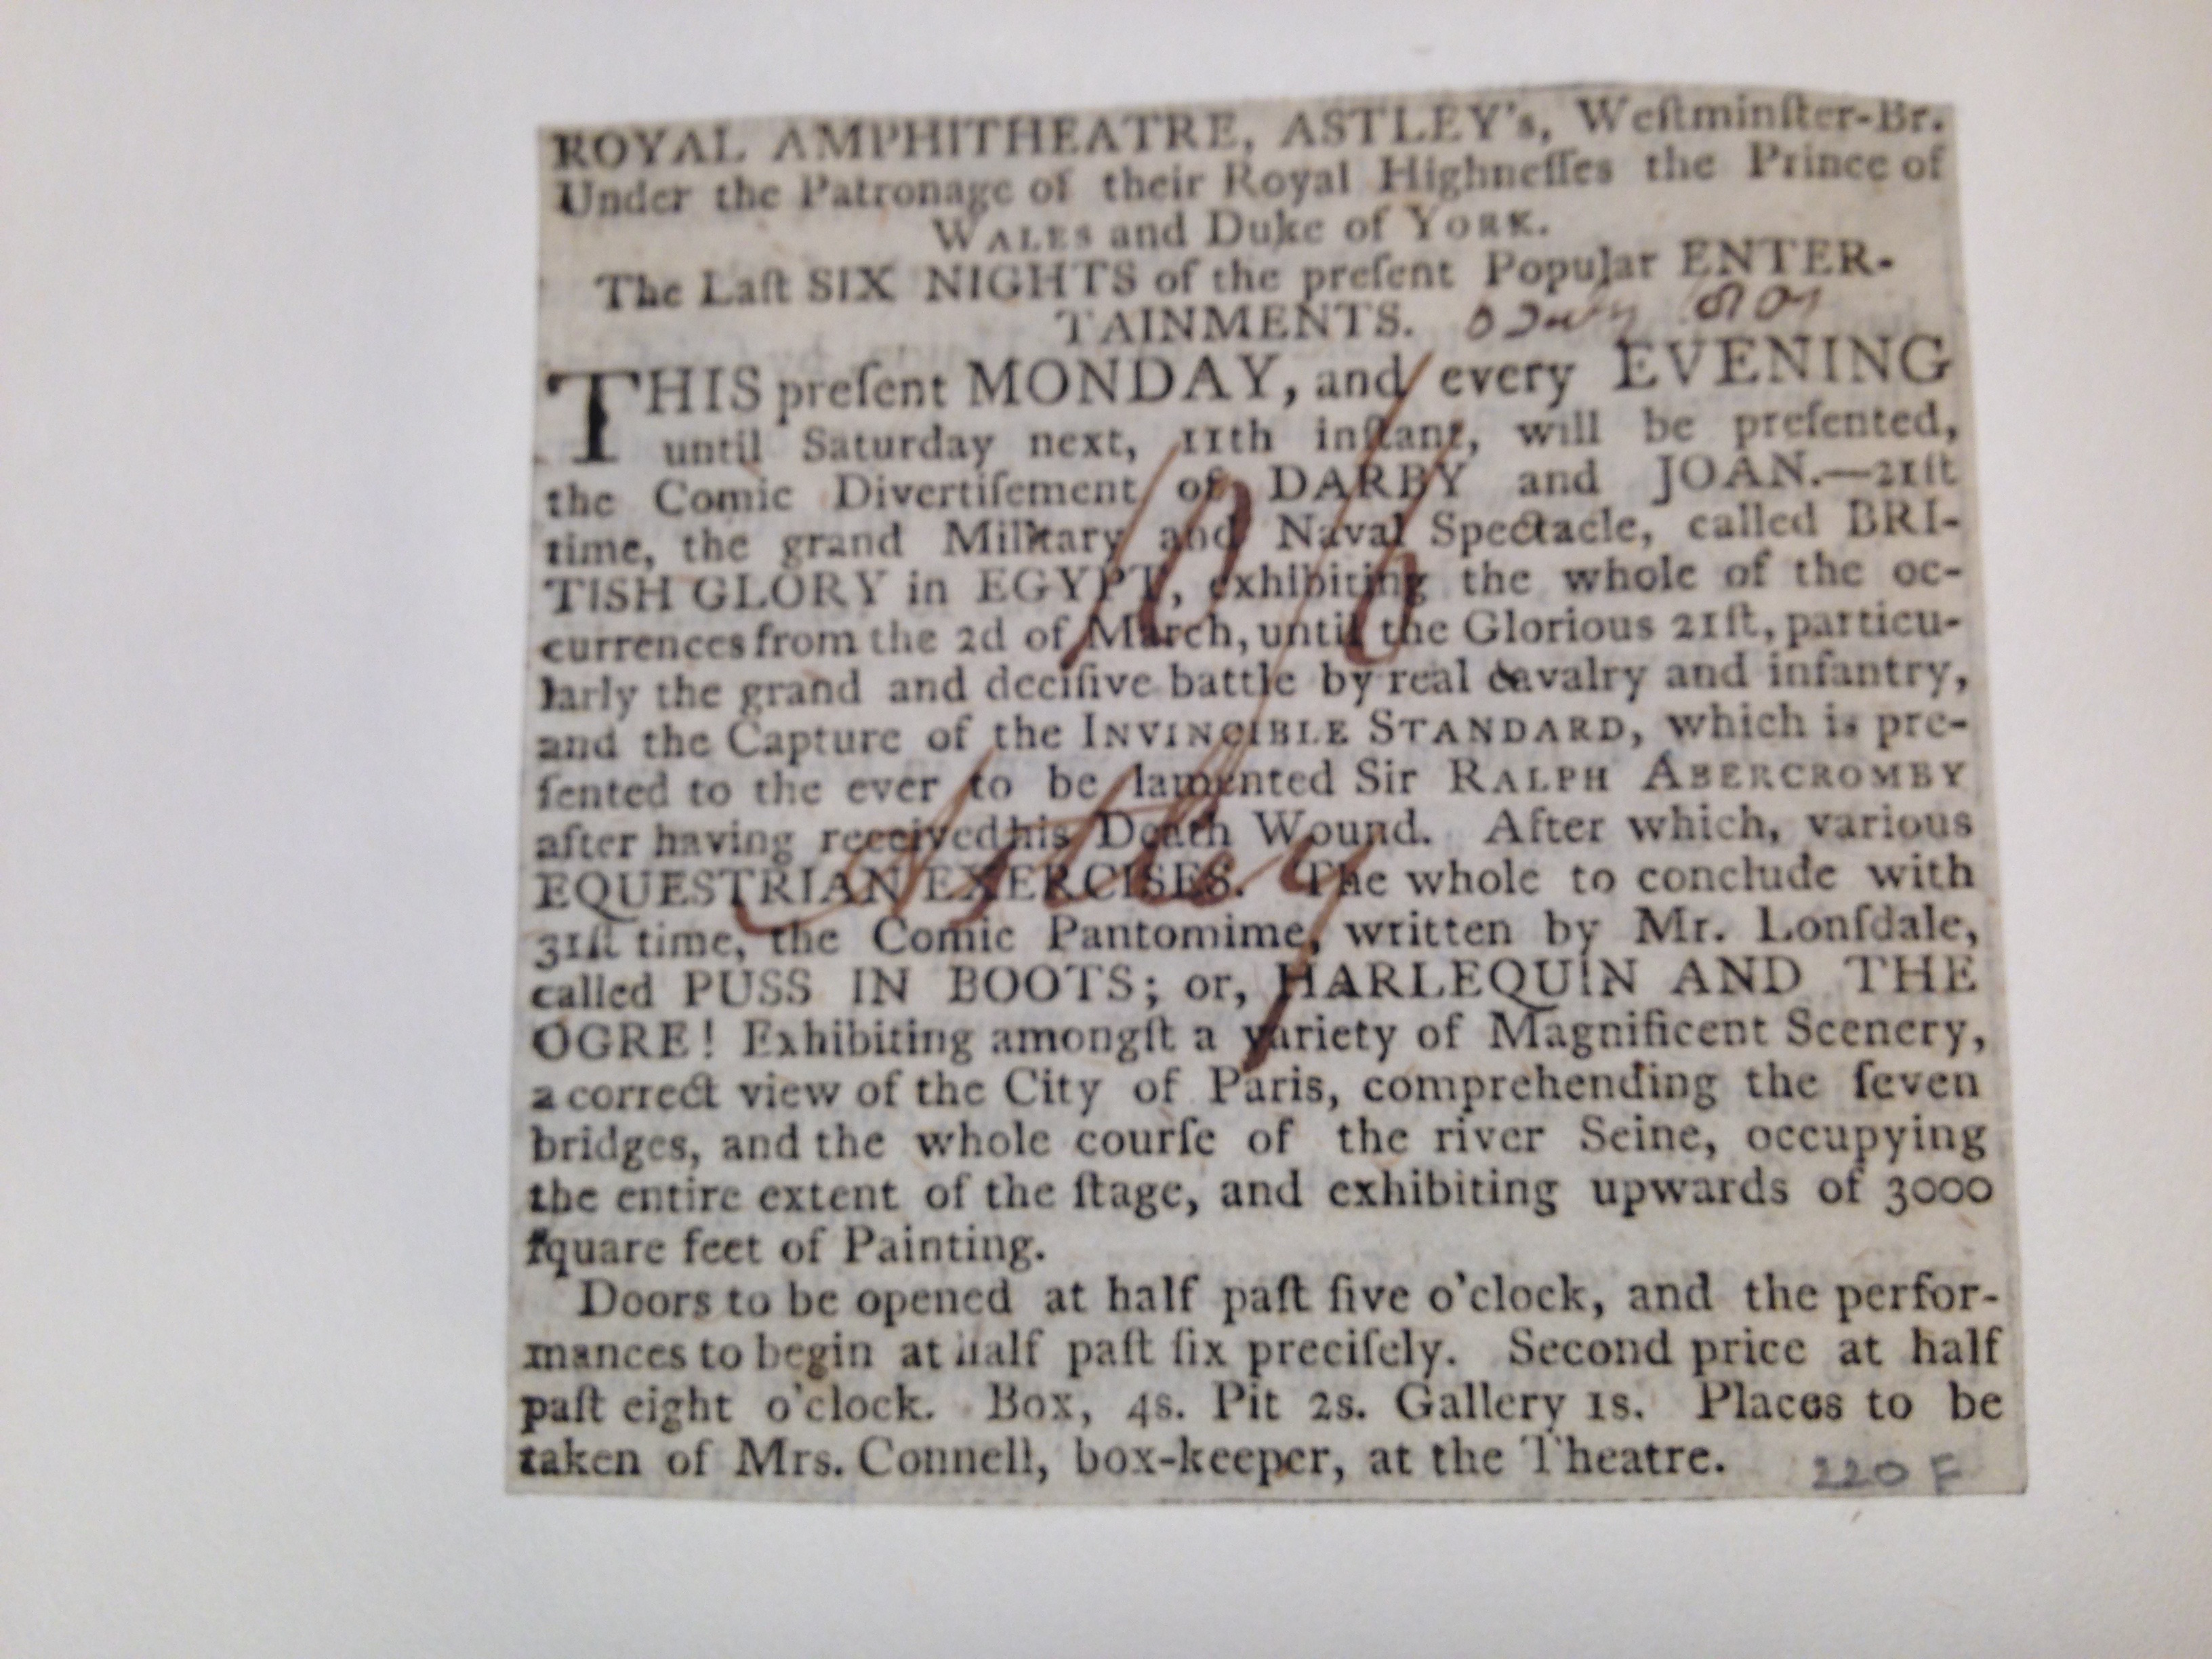 ROYAL AMPHITHEATRE, ASTLEY's, Weſtminſter-Br.
Under the Patronage of their Royal Highneſſes the Prince of
WALES and Duke of YORK.
The Laſt SIX NIGHTS of the preſent Popular ENTER-
TAINMENTS. July 1801
THIS preſent MONDAY, and every EVENING
until Saturday next, 11th inſtant, will be preſented,
the Comic Divertiſement of DARBY and JOAN.—21ſt
time, the grand Military and Naval Spectacle, called BRI-
TISH GLORY in EGYPT, exhibiting the whole of the oc-
currences from the 2d of March, until the Glorious 21ſt, particu-
larly the grand and deciſive battle by real cavalry and infantry,
and the Capture of the INVINCIBLE STANDARD, which is pre-
ſented to the ever to be lamented Sir RALPH ABERCROMBY
after having received his Death Wound. After which, various
EQUESTRIAN EXERCISES. The whole to conclude with
31ſt time, the Comic Pantomime, written by Mr. Lonſdale,
called PUSS IN BOOTS; or, HARLEQUIN AND THE
OGRE! Exhibiting amongſt a variety of Magnificent Scenery,
a correct view of the City of Paris, comprehending the ſeven
bridges, and the whole courſe of the river Seine, occupying
the entire extent of the ſtage, and exhibiting upwards of 3000
ſquare feet of Painting.
Doors to be opened at half paſt five o'clock, and the perfor-
mances to begin at half paſt ſix preciſely. Second price at half
paſt eight o'clock. Box, 4s. Pit 2s. Gallery 1s. Places to be
taken of Mrs. Connell, box-keeper, at the Theatre.
220 F
10/6
Astley